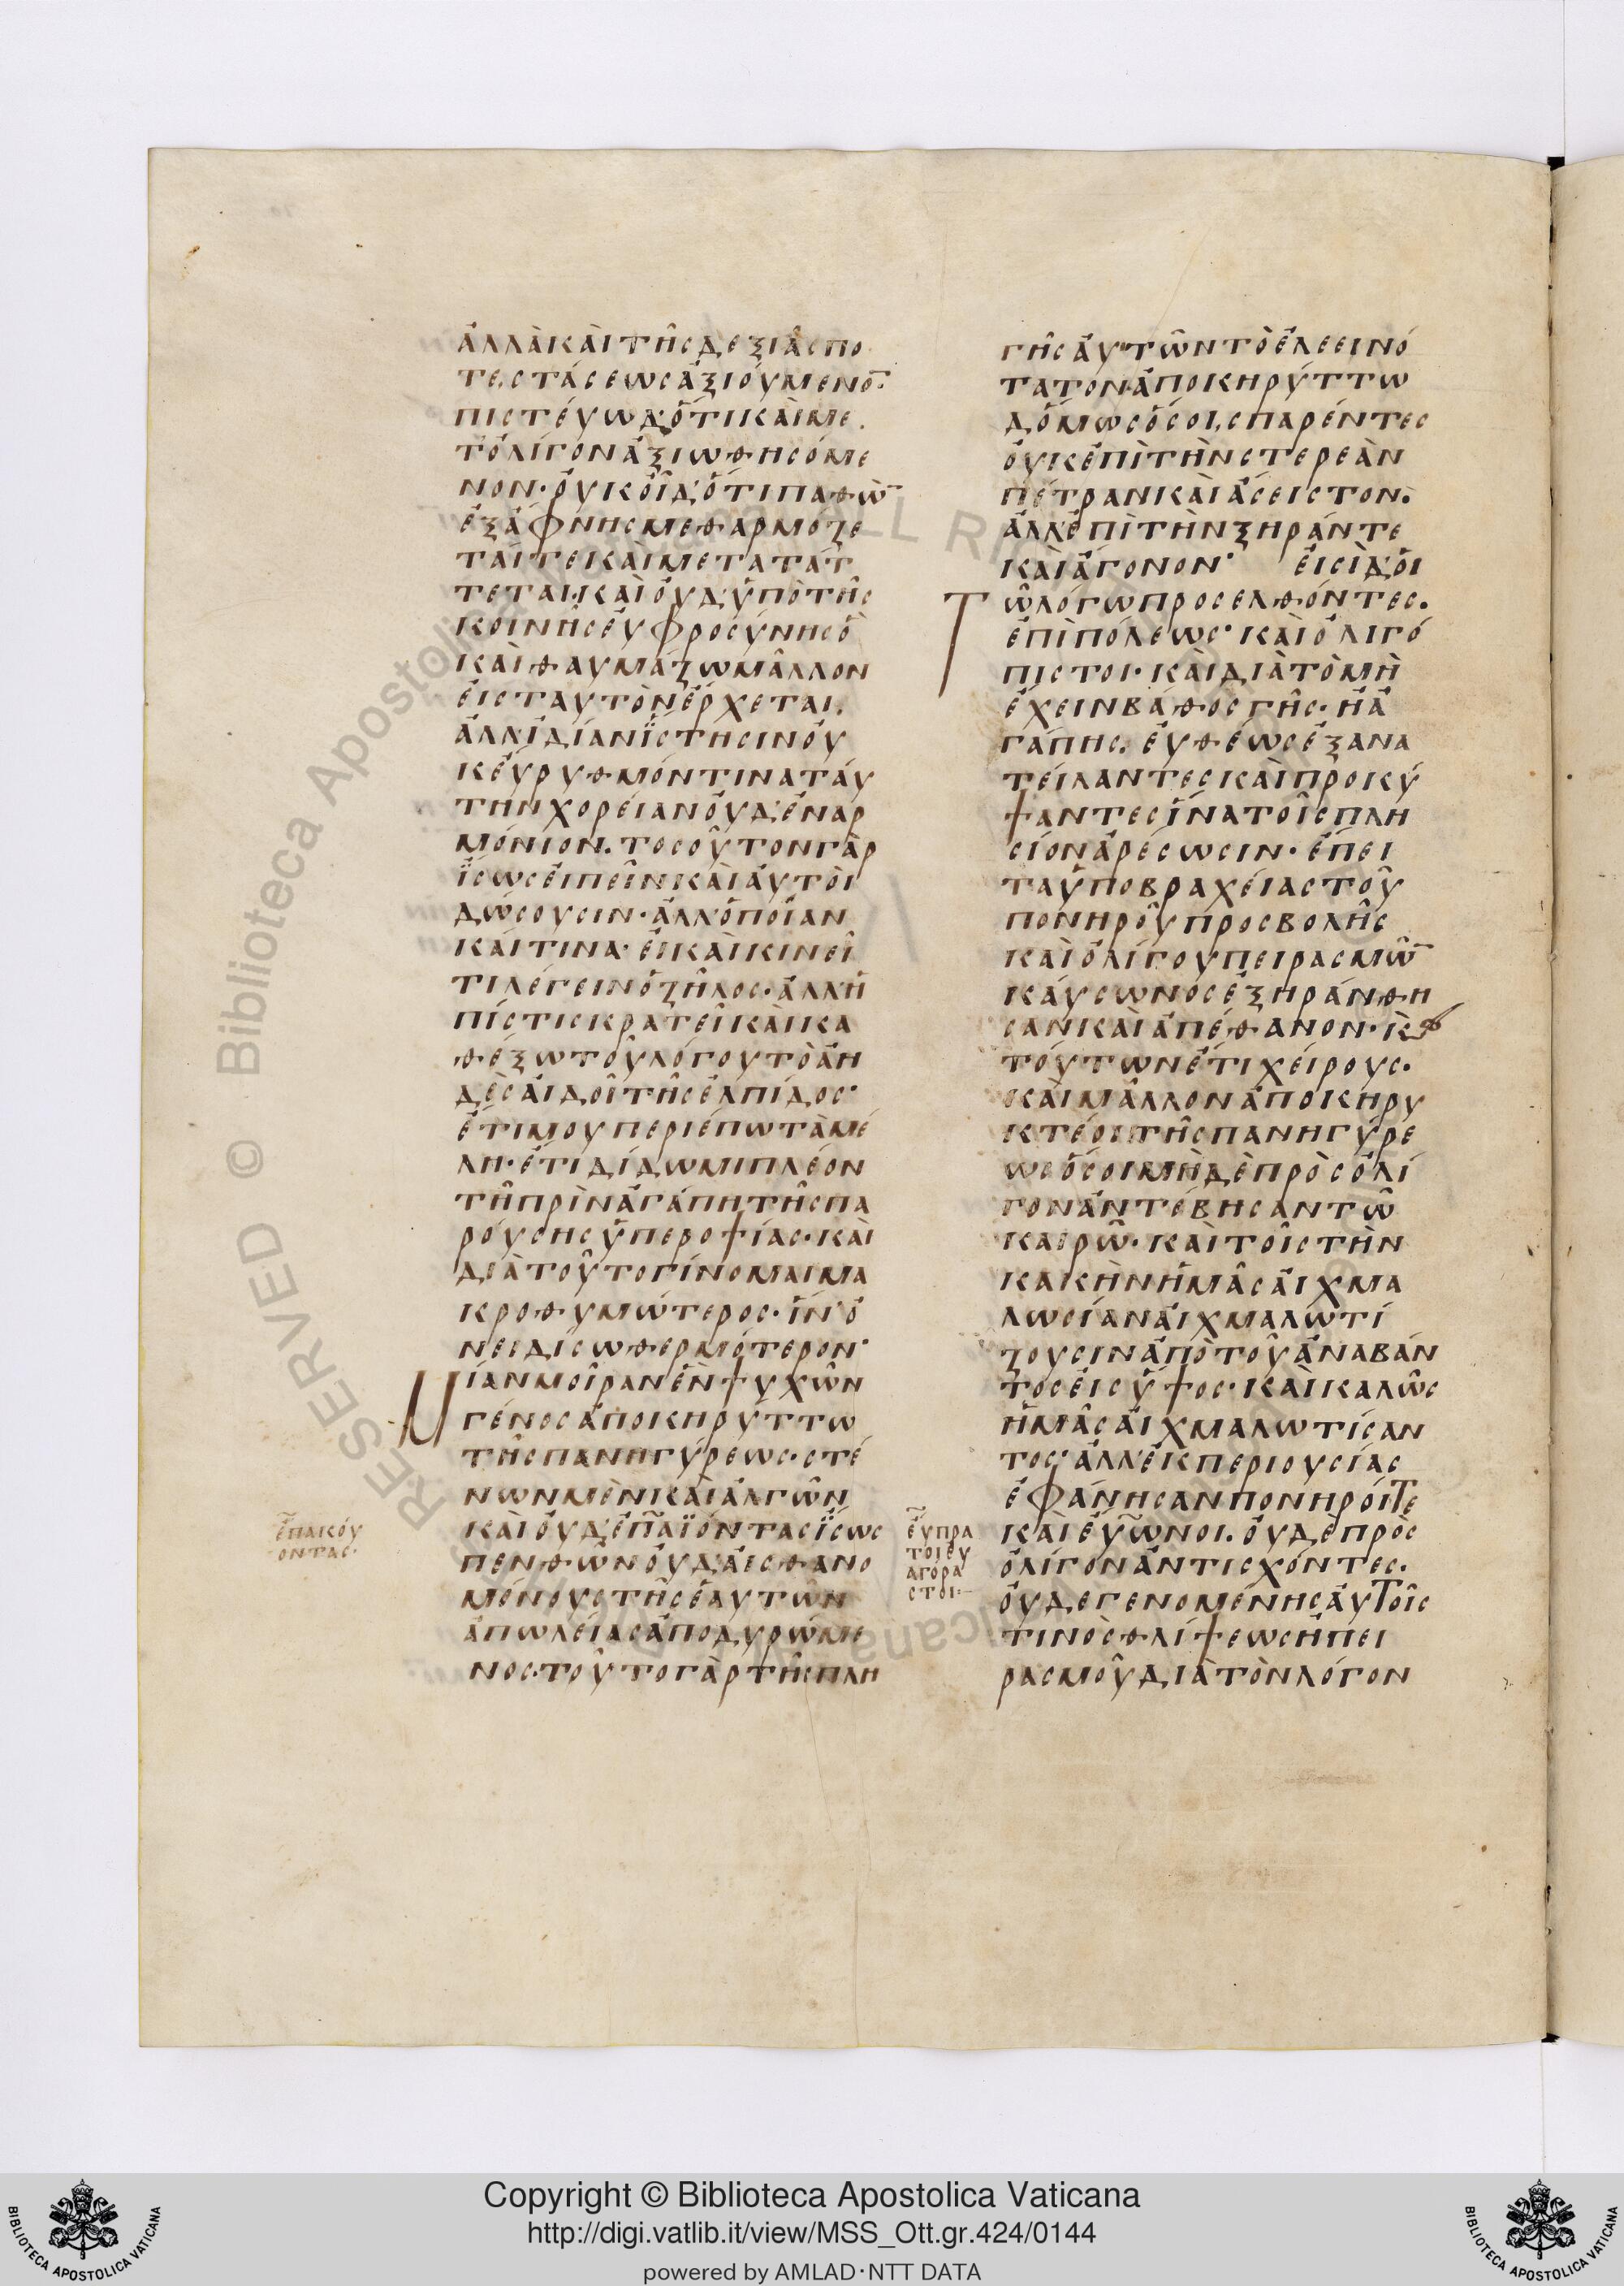 ἀλλὰ καὶ τῆς δεξιᾶς πο
τε, στάσεως ἀξιούμενο̅·
πιστεύω δ' ὅτι καὶ με
τ' ὀλίγον ἀξιωθησόμε
νον· οὐκ οἶδ' ὅτι παθὼ̅
ἐξάφνης μεθαρμόζε
ταί γε καὶ μετατάτ
τεται· καὶ οὐδ' ὑπὸ τῆς
κοινῆς εὐφροσύνης ὃ
καὶ θαυμάζω μᾶλλον
εἰς ταυτὸν ἔρχεται.
ἀλλ' ἰδίαν ἵστησιν οὐ
κ εὔρυθμόν τινα ταύ
την χορείαν οὐδ' ἐναρ
μόνιον. τοσοῦτον γὰρ
ἴσως εἰπεῖν καὶ αὐτοὶ
δώσουσιν· ἀλλ' ὁποίαν
καί τινα· εἰ καὶ κινεῖ
τι λέγειν ὁ ζῆλος· ἀλλ' ἡ
πίστις κρατεῖ καὶ κα
θέξω τοῦ λόγου τὸ ἀη
δὲς αἰδοῖ τῆς ἐλπίδος·
ἔτι μου περιέπω τὰ μέ
λη· ἔτι δίδωμι πλέον
τῇ πρὶν ἀγάπῃ τῆς πα
ρούσης ὑπεροψίας· καὶ
διὰ τοῦτο γίνομαι μα
κροθυμώτερος· ἵν' ὀ
νειδίσω θερμότερον·
Μίαν μοῖραν ἓν ψυχῶν
γένος ἀποκηρύττω
τῆς πανηγύρεως· στέ
νων μὲν καὶ ἀλγῶν
καὶ οὐδ' ἐπαϊόντας ἴσως
πενθῶν οὐδ' αἰσθανο
μένους τῆς ἑαυτῶν
ἀπωλείας ἀποδυρώμε
νος· τοῦτο γὰρ τῆς πλη
ἐπακού
οντας·
γῆς αὐτῶν τὸ ἐλεεινό
τατον· ἀποκηρύττω
δ' ὅμως ὅσοι, σπαρέντες
οὐκ ἐπὶ τὴν στερεὰν
πέτραν καὶ ἄσειστον·
ἀλλ' ἐπὶ τὴν ξηράν τε
καὶ ἄγονον· εἰσὶ δ' οἱ
Τῶ λόγω προσελθόντες·
ἐπὶ πόλεως· καὶ ὀλιγό
πιστοι· καὶ διὰ τὸ μὴ
ἔχειν βάθος γῆς· ἢ ἀ
γάπης· εὐθέως ἐξανα
τείλαντες καὶ προκύ
ψαντες ἵνα τοῖς πλη
σίον ἀρέσωσιν· ἔπει
τα ὑπὸ βραχείας τοῦ
πονηροῦ προσβολῆς
καὶ ὀλίγου πειρασμῶ̅
καύσωνος ἐξηράνθη
σαν καὶ ἀπέθανον· κ̀
τούτων ἔτι χείρους·
καὶ μᾶλλον ἀποκηρυ
κτέοι τῆς πανηγύρε
ως ὅσοι μὴ δὲ πρὸς ὀλί
γον ἀντέβησαν τῶ
καιρῶ· καὶ τοῖς τὴν
κακὴν ἡμᾶς αἰχμα
λωσίαν αἰχμαλωτί
ζουσιν ἀπὸ τοῦ ἀναβάν
τος εἰς ὕψος· καὶ καλῶς
ἡμᾶς αἰχμαλωτίσαν
τος· ἀλλ' ἐκ περιουσίας
ἐφάνησαν πονηροί τε
καὶ εὔωνοι. οὐδὲ πρὸς
ὀλίγον ἀντισχόντες.
οὐδε γενομένης αὐτοῖς
τινὸς θλίψεως ἢ πει
ρασμοῦ διὰ τὸν λόγον
εὔπρα
τοι εὐ
αγόρα
στοι:—
RESERVED © Biblioteca Apostolica Vaticana ALL RIGHTS
Copyright © Biblioteca Apostolica Vaticana
http://digi.vatlib.it/view/MSS_Ott.gr.424/0144
powered by AMLAD·NTT DATA
BIBLIOTECA APOSTOLICA VATICANA
BIBLIOTECA APOSTOLICA VATICANA